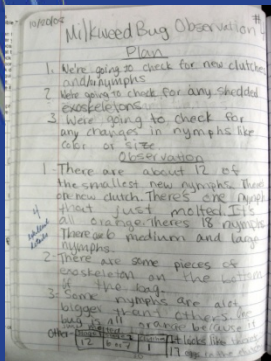 10/10/05
Milkweed Bug Observation #
Plan
1. We're going to check for new clutches
and/or nymphs
2. We're going to check for any shedded
exoskeletons.
3. We're going to check for
any changes in nymphs like
color or size
Observation
1- There are about 12 of
the smallest new nymphs. There
one new clutch. There's one nymph
that just molted. It's
all orange. There's 18 nymphs
There 6 medium and large
nymphs.
2- There are some pieces of
exoskeleton on the bottom
of the bag.
3- Some nymphs are alot
bigger than others.
bug is orange because it
Other
It looks like there
12 6 1 17